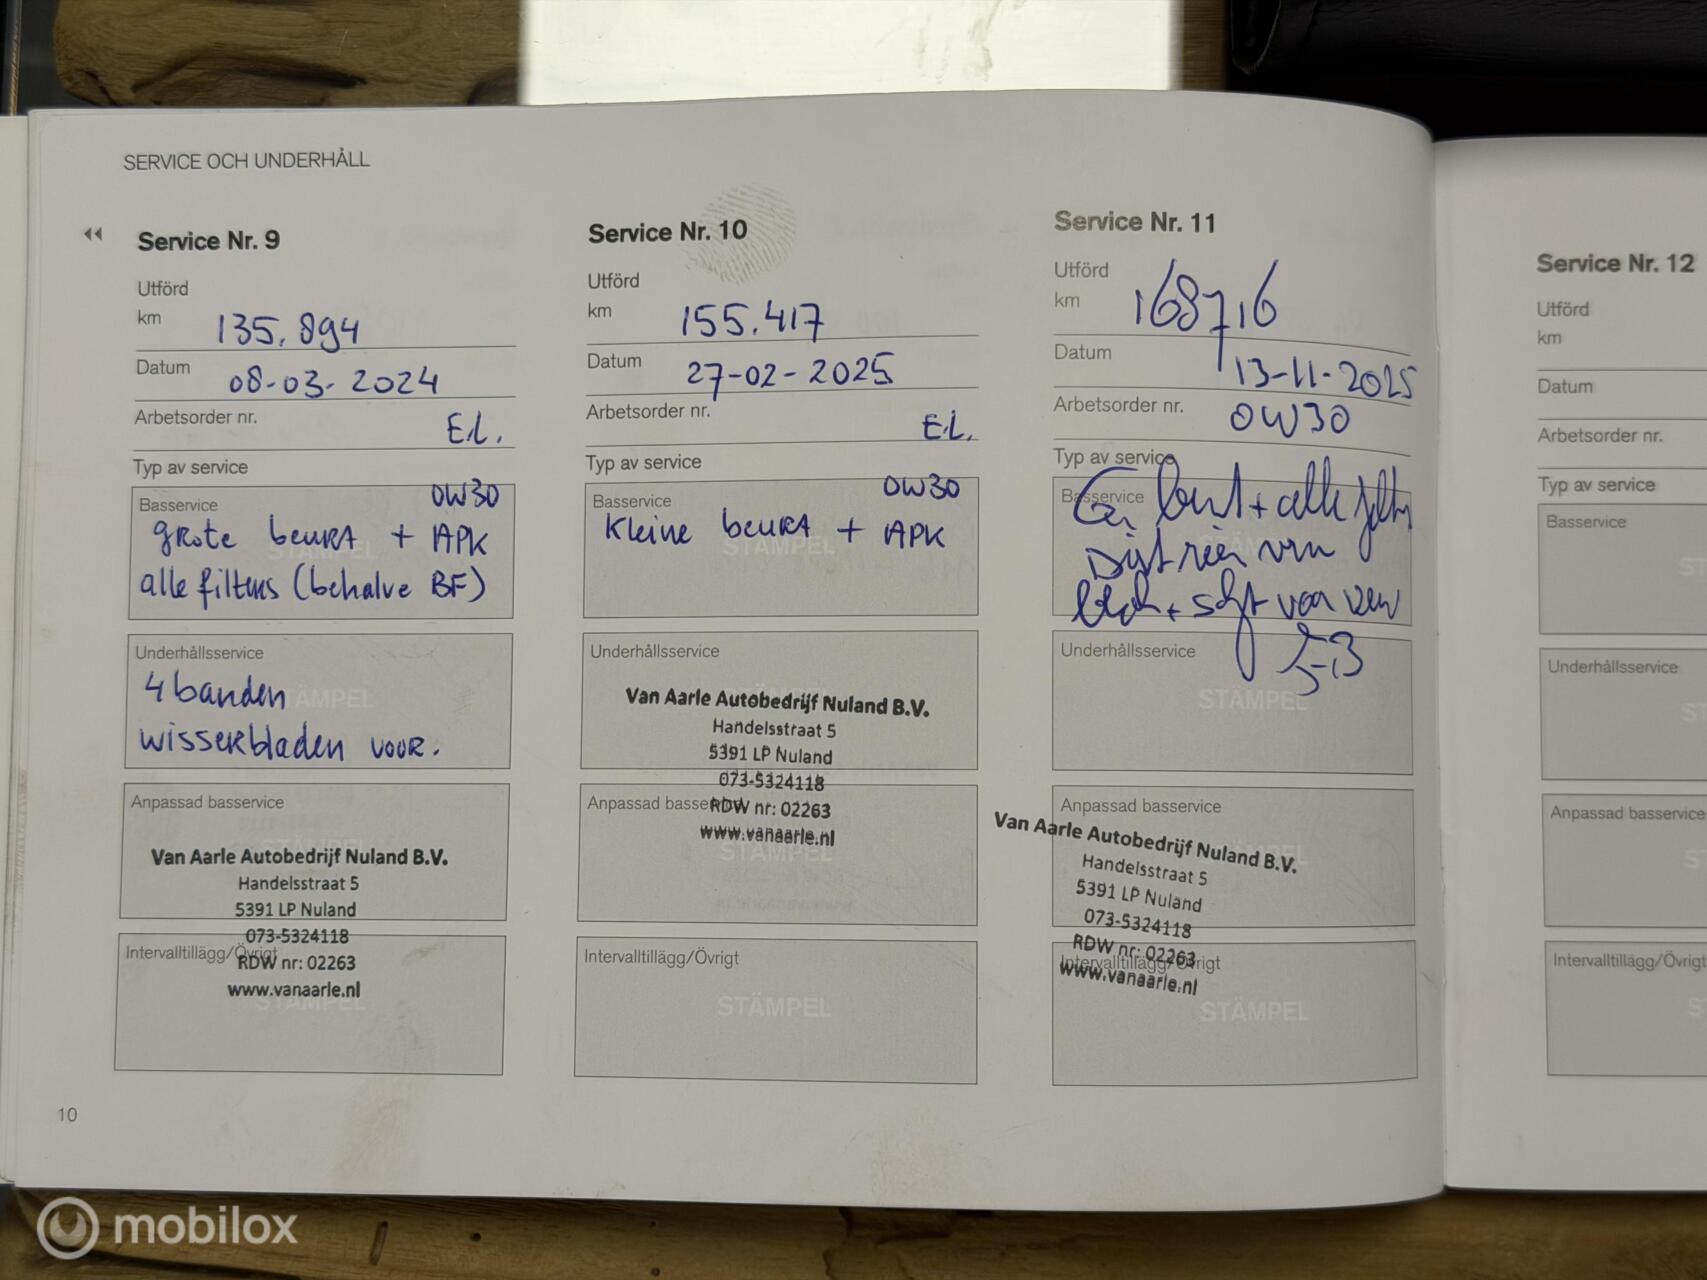 SERVICE OCH UNDERHÅLL
Service Nr. 9
Utförd
km 135.894
Datum 08-03-2024
Arbetsorder nr. E.L.
Typ av service
Basservice 0W30
grote beurt + APK
alle filters (behalve BF)
Underhållsservice
4 banden
STÄMPEL
wisserbladen voor.
Anpassad basservice
Van Aarle Autobedrijf Nuland B.V.
Handelsstraat 5
5391 LP Nuland
073-5324118
Intervalltillägg/Övrigt
RDW nr: 02263
www.vanaarle.nl
STÄMPEL
10
Service Nr. 10
Utförd
km 155.417
Datum 27-02-2025
Arbetsorder nr. E.L.
Typ av service
Basservice 0W30
kleine beurt + APK
STÄMPEL
Underhållsservice
Van Aarle Autobedrijf Nuland B.V.
Handelsstraat 5
5391 LP Nuland
073-5324118
Anpassad basservice
RDW nr: 02263
www.vanaarle.nl
STÄMPEL
Intervalltillägg/Övrigt
STÄMPEL
Service Nr. 11
Utförd
km 168716
Datum 13-11-2025
Arbetsorder nr. 0W30
Typ av service
Basservice
beurt + alle
voor
Underhållsservice
STÄMPEL
Anpassad basservice
Van Aarle Autobedrijf Nuland B.V.
Handelsstraat 5
5391 LP Nuland
073-5324118
RDW nr: 02263
Intervalltillägg/Övrigt
www.vanaarle.nl
STÄMPEL
Service Nr. 12
Utförd
km
Datum
Arbetsorder nr.
Typ av service
Basservice
Underhållsservice
Anpassad basservice
Intervalltillägg/Övrigt
mobilox